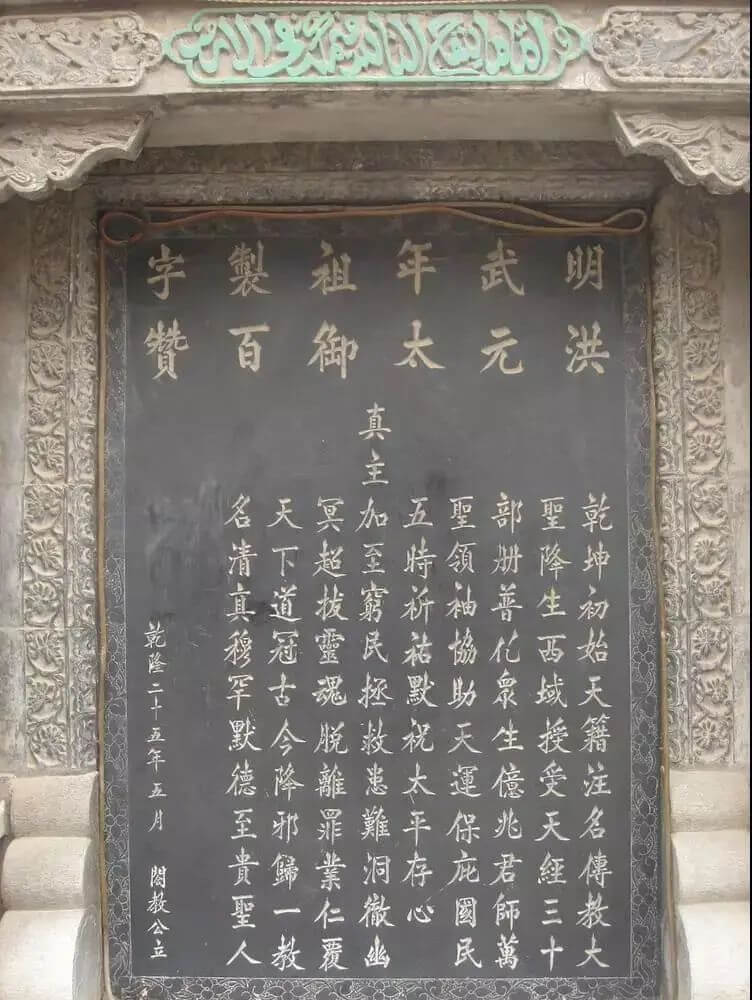 明洪
武元
年太
祖御
製百
字讚
乾坤初始天籍注名傳教大
聖降生西域授受天經三十
部册普化眾生億兆君師萬
聖領袖協助天運保庇國民
五時祈祐默祝太平存心
真主加至窮民拯救患難洞徹幽
冥超拔靈魂脱離罪業仁覆
天下道冠古今降邪歸一教
名清真穆罕默德至貴聖人
乾隆二十五年五月 閤教公立